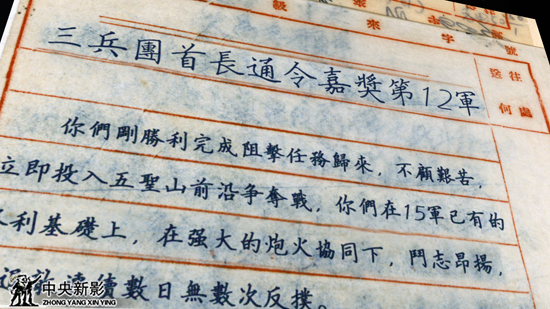 級來字號
送往
何處
三兵團首長通令嘉獎第12軍
你們剛勝利完成阻擊任務歸來，不顧艱苦，
立即投入五聖山前沿爭奪戰，你們在15軍已有的
利基礎上，在强大的炮火協同下，鬥志昂揚，
連續數日無數次反撲。
中央新影
ZHONG YANG XIN YING